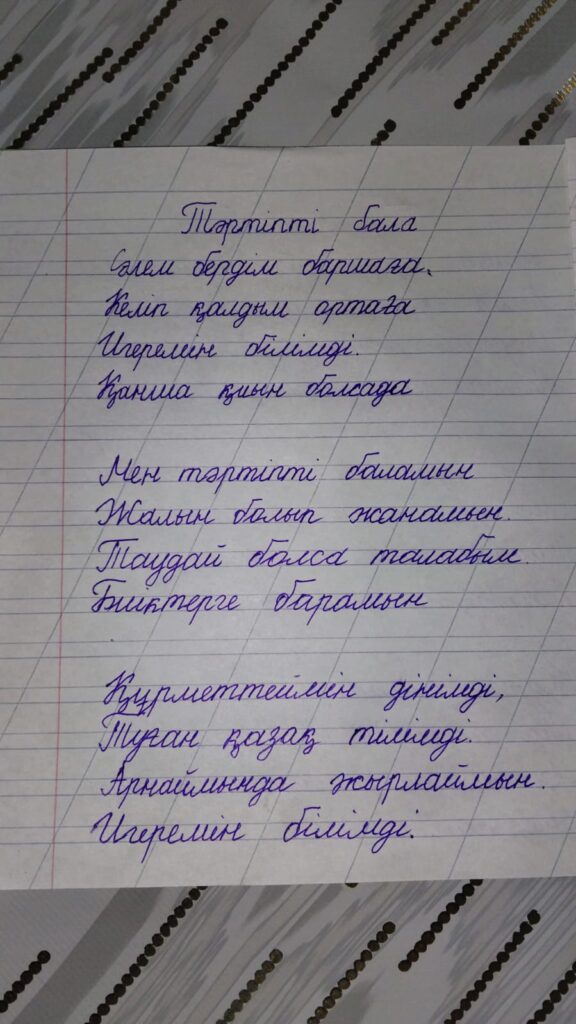 Тәртіпті бала
Сәлем бердім баршаға,
Келіп қалдым ортаға
Игеремін білімді.
Қанша қиын болсада
Мен тәртіпті баламын
Жалын болып жанамын.
Таудай болса талабым.
Биіктерге барамын
Құрметтеймін дінімді,
Туған қазақ тілімді.
Арнаймында жырлаймын.
Игеремін білімді.